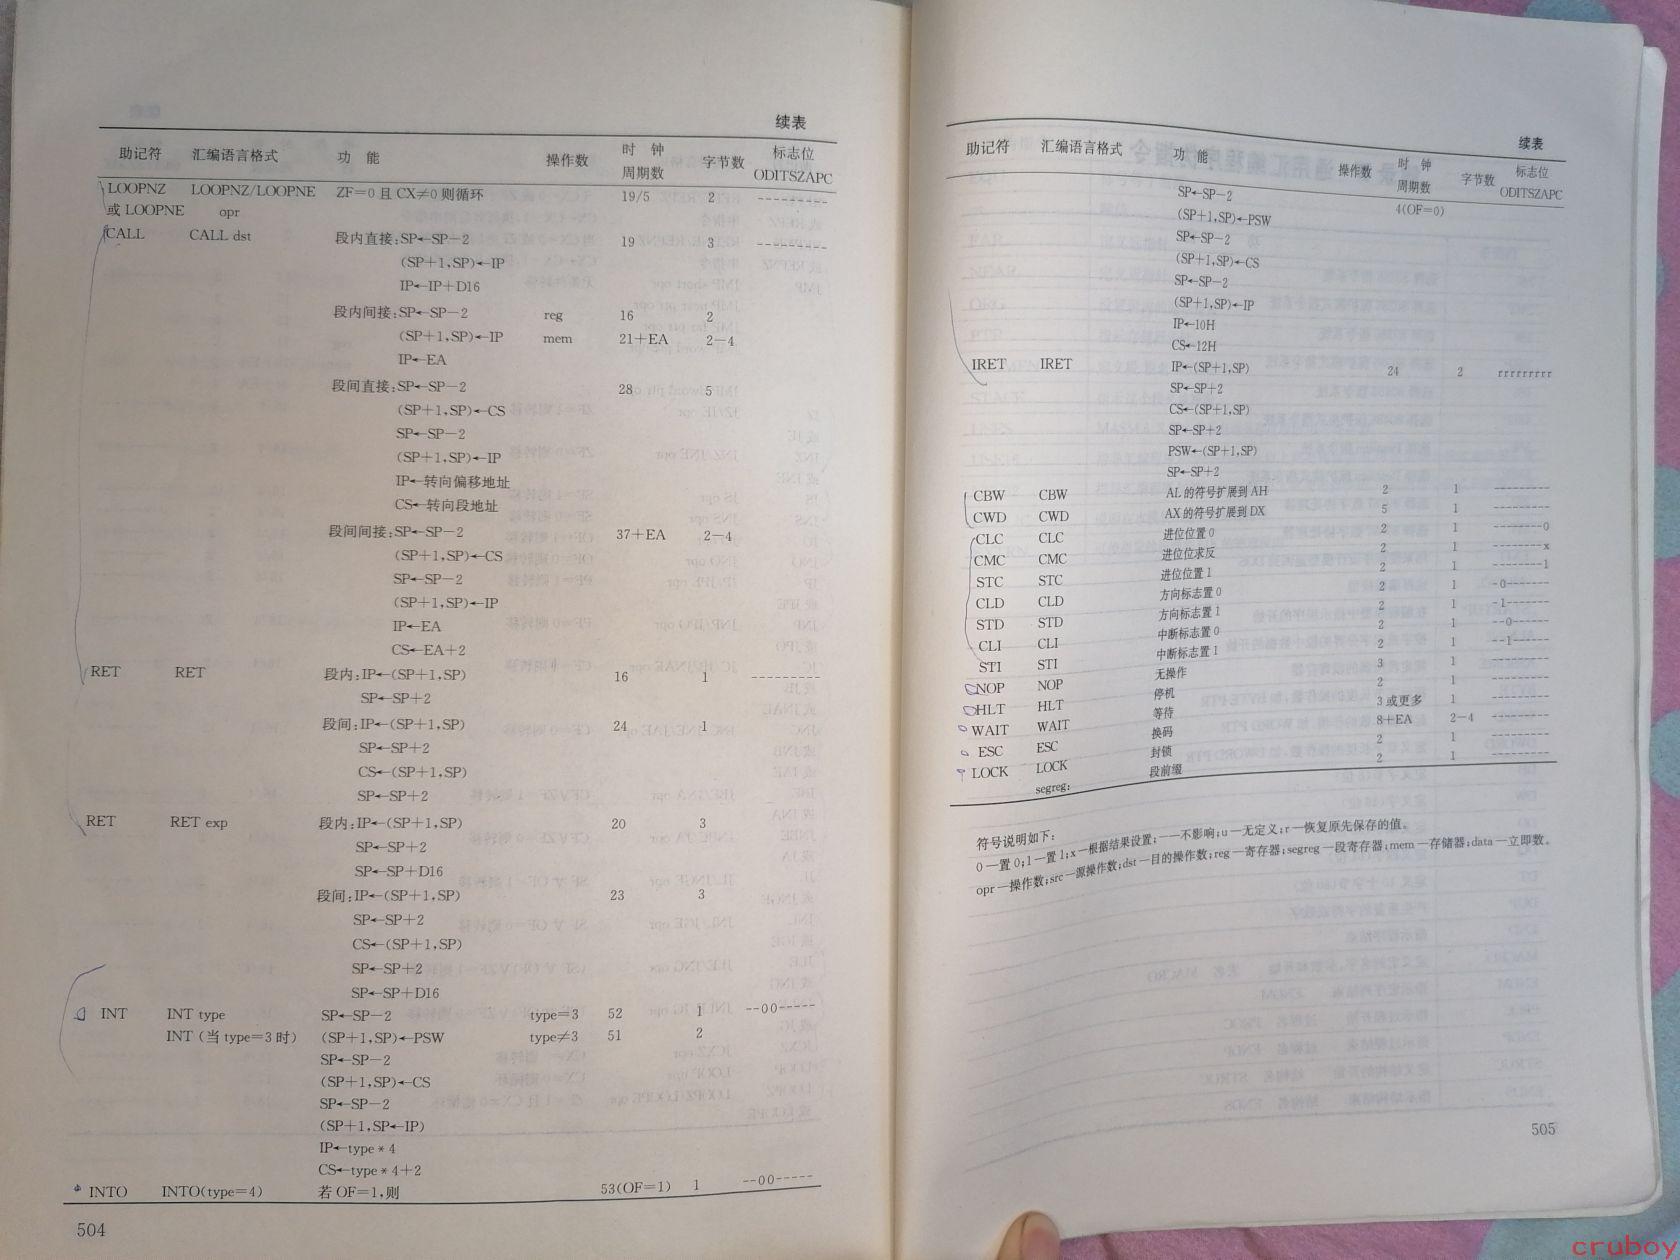 续表
助记符 汇编语言格式 功 能 操作数 时 钟 周期数 字节数 标志位 ODITSZAPC
LOOPNZ LOOPNZ/LOOPNE ZF=0且CX≠0则循环 19/5 2 ---------
或LOOPNE opr
CALL CALL dst 段内直接:SP←SP-2 19 3 ---------
(SP+1,SP)←IP
IP←IP+D16
段内间接:SP←SP-2 reg 16 2
(SP+1,SP)←IP mem 21+EA 2-4
IP←EA
段间直接:SP←SP-2 28 5
(SP+1,SP)←CS
SP←SP-2
(SP+1,SP)←IP
IP←转向偏移地址
CS←转向段地址
段间间接:SP←SP-2 37+EA 2-4
(SP+1,SP)←CS
SP←SP-2
(SP+1,SP)←IP
IP←EA
CS←EA+2
RET RET 段内:IP←(SP+1,SP) 16 1 ---------
SP←SP+2
段间:IP←(SP+1,SP) 24 1
SP←SP+2
CS←(SP+1,SP)
SP←SP+2
RET RET exp 段内:IP←(SP+1,SP) 20 3
SP←SP+2
SP←SP+D16
段间:IP←(SP+1,SP) 23 3
SP←SP+2
CS←(SP+1,SP)
SP←SP+2
SP←SP+D16
INT INT type SP←SP-2 type=3 52 1 --00-----
INT(当type=3时) (SP+1,SP)←PSW type≠3 51 2
SP←SP-2
(SP+1,SP)←CS
SP←SP-2
(SP+1,SP←IP)
IP←type*4
CS←type*4+2
INTO INTO(type=4) 若OF=1,则 53(OF=1) 1 --00-----
504
续表
助记符 汇编语言格式 功 能 操作数 时 钟 周期数 字节数 标志位 ODITSZAPC
SP←SP-2 4(OF=0)
(SP+1,SP)←PSW
SP←SP-2
(SP+1,SP)←CS
SP←SP-2
(SP+1,SP)←IP
IP←10H
CS←12H
IRET IRET IP←(SP+1,SP) 24 2 rrrrrrrrr
SP←SP+2
CS←(SP+1,SP)
SP←SP+2
PSW←(SP+1,SP)
SP←SP+2
CBW CBW AL的符号扩展到AH 2 1 ---------
CWD CWD AX的符号扩展到DX 5 1 ---------
CLC CLC 进位位置0 2 1 --------0
CMC CMC 进位位求反 2 1 --------x
STC STC 进位位置1 2 1 --------1
CLD CLD 方向标志置0 2 1 -0-------
STD STD 方向标志置1 2 1 -1-------
CLI CLI 中断标志置0 2 1 --0------
STI STI 中断标志置1 2 1 --1------
NOP NOP 无操作 3 1 ---------
HLT HLT 停机 2 1 ---------
WAIT WAIT 等待 3或更多 1 ---------
ESC ESC 换码 8+EA 2-4 ---------
LOCK LOCK 封锁 2 1 ---------
segreg: 段前缀 2 1 ---------
符号说明如下:
0—置0;1—置1;x—根据结果设置;-—不影响;u—无定义;r—恢复原先保存的值。
opr—操作数;src—源操作数;dst—目的操作数;reg—寄存器;segreg—段寄存器;mem—存储器;data—立即数。
505
cruboy